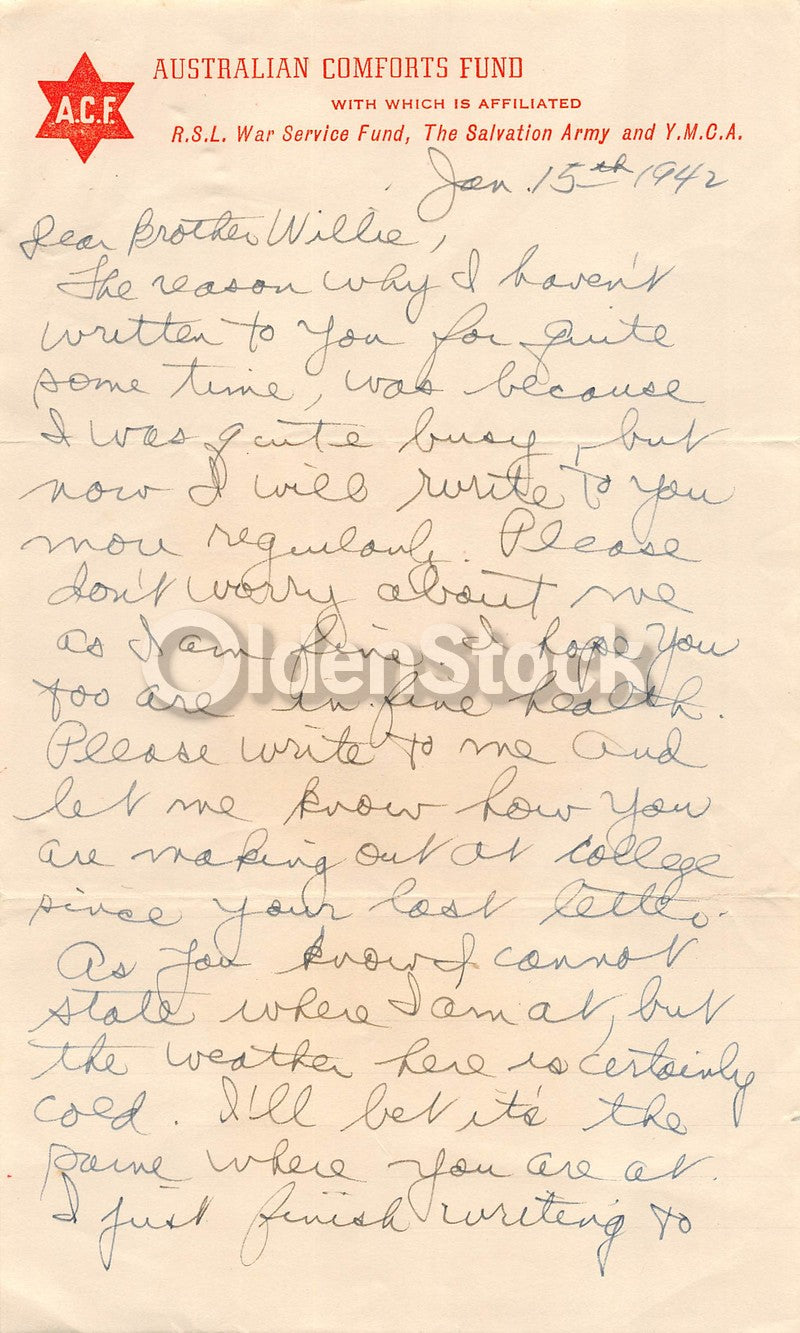 AUSTRALIAN COMFORTS FUND
A.C.F.
WITH WHICH IS AFFILIATED
R.S.L. War Service Fund, The Salvation Army and Y.M.C.A.
Jan. 15th 1942
Dear Brother Willie,
The reason why I haven't
written to you for quite
some time, was because
I was quite busy, but
now I will write to you
more regularly. Please
don't worry about me
as I am fine. I hope you
too are in fine health.
OldenStock
Please write to me and
let me know how you
are making out at college
since your last letter.
As you know I cannot
state where I am at, but
the weather here is certainly
cold. I'll bet it's the
same where you are at.
I just finish writing to